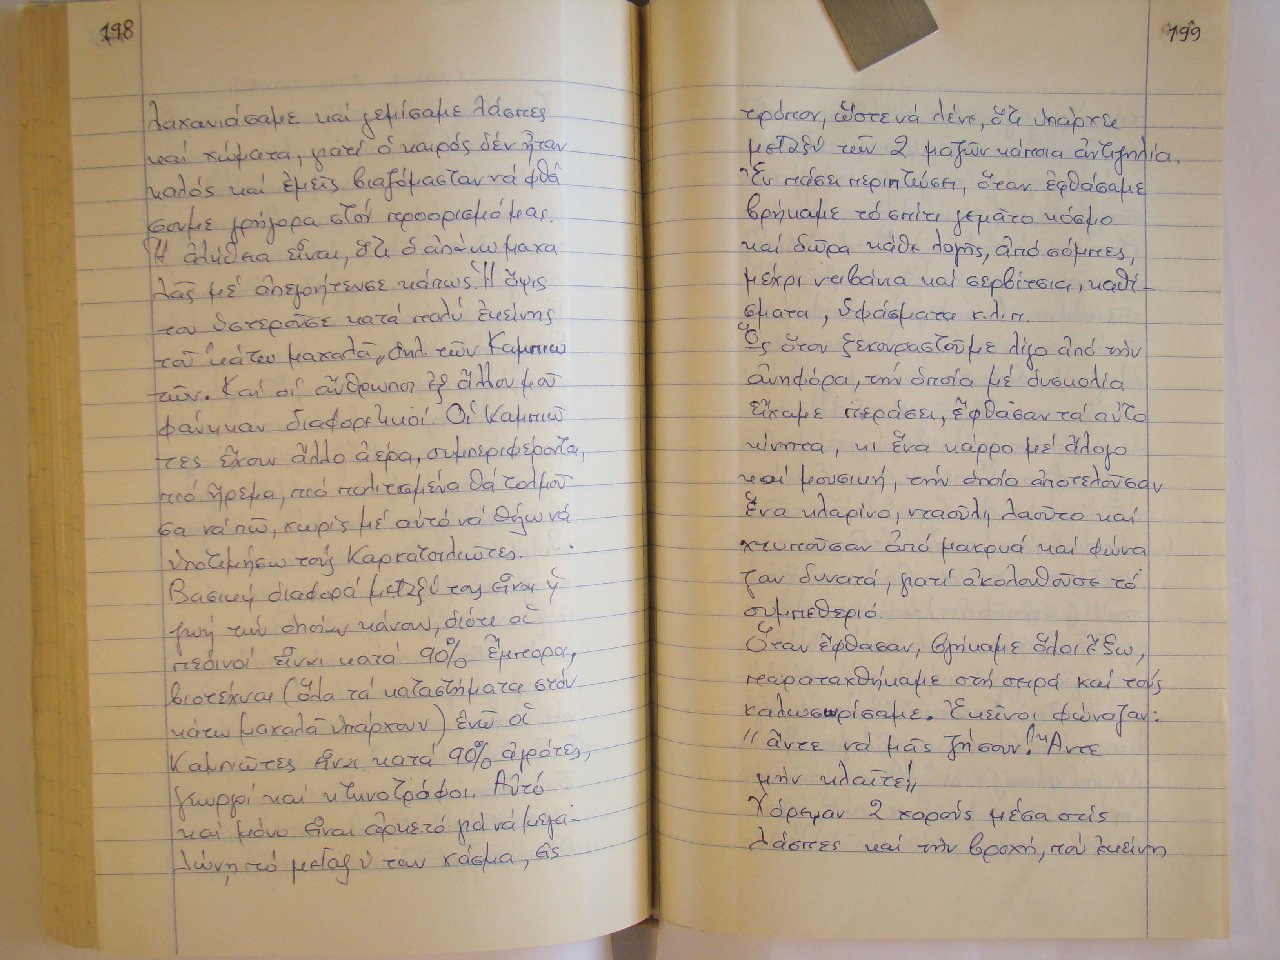 198
λαχανιάσαμε καί γεμίσαμε λάσπες
καί χώματα, γιατί ὁ καιρός δέν ἦταν
καλός καί ἐμεῖς βιαζόμασταν νά φθά
σουμε γρήγορα στόν προορισμό μας.
Ἡ ἀλήθεια εἶναι, ὅτι ὁ ἀπάνω μαχα
λᾶς μέ ἀπεγοήτευσε κάπως. Ἡ ὄψις
του ὑστεροῦσε κατά πολύ ἐκείνης
τοῦ κάτω μαχαλᾶ, δηλ. τῶν Καμπιω
τῶν. Καί οἱ ἄνθρωποι ἐξ ἄλλου μοῦ
φάνηκαν διαφορετικοί. Οἱ Καμπιῶ
τες ἔχουν ἄλλο ἀέρα, συμπεριφέρονται,
πιό ἤρεμα, πιό πολιτισμένα θά τολμοῦ
σα νά πῶ, χωρίς μέ αὐτό νά θέλω νά
ὑποτιμήσω τούς Καρκατσιλιῶτες.
Βασική διαφορά μεταξύ τους εἶναι ἡ
ζωή τήν ὁποία κάνουν, διότι οἱ
πεδινοί εἶναι κατά 90% ἔμποροι,
βιοτέχναι (ὅλα τά καταστήματα στόν
κάτω μαχαλᾶ ὑπάρχουν) ἐνῶ οἱ
Καμπιῶτες εἶναι κατά 90% ἀγρότες,
γεωργοί καί κτηνοτρόφοι. Αὐτό
καί μόνο εἶναι ἀρκετό γιά νά μεγα-
λώνη τό μεταξύ των χάσμα, εἰς
199
τρόπον, ὥστε νά λένε, ὅτι ὑπάρχει
μεταξύ τῶν 2 μαζῶν κάποια ἀντιζηλία.
Ἐν πάσει περιπτώσει, ὅταν ἐφθάσαμε
βρήκαμε τό σπίτι γεμᾶτο κόσμο
καί δῶρα κάθε λογῆς, ἀπό σόμπες,
μέχρι ντιβάνια καί σερβίτσια, καθί-
σματα, ὑφάσματα κ.λ.π.
Ὥς ὅτου ξεκουραστοῦμε λίγο ἀπό τήν
ἀνηφόρα, τήν ὁποία μέ δυσκολία
εἴχαμε περάσει, ἔφθασαν τά αὐτο
κίνητα, κι ἕνα κάρρο μέ ἄλογο
καί μουσική, τήν ὁποία ἀποτελοῦσαν
ἕνα κλαρίνο, νταούλι, λαοῦτο καί
χτυποῦσαν ἀπό μακρυά καί φώνα
ζαν δυνατά, γιατί ἀκολουθοῦσε τό
συμπεθεριό.
Ὅταν ἔφθασαν, βγήκαμε ὅλοι ἔξω,
παραταχθήκαμε στή σειρά καί τούς
καλωσωρίσαμε. Ἐκεῖνοι φώναζαν:
"ἄντε νά μᾶς ζήσουν!" "Ἄντε
μήν κλαῖτε!"
Χόρεψαν 2 χορούς μέσα στίς
λάσπες καί τήν βροχή, πού ἐκείνη